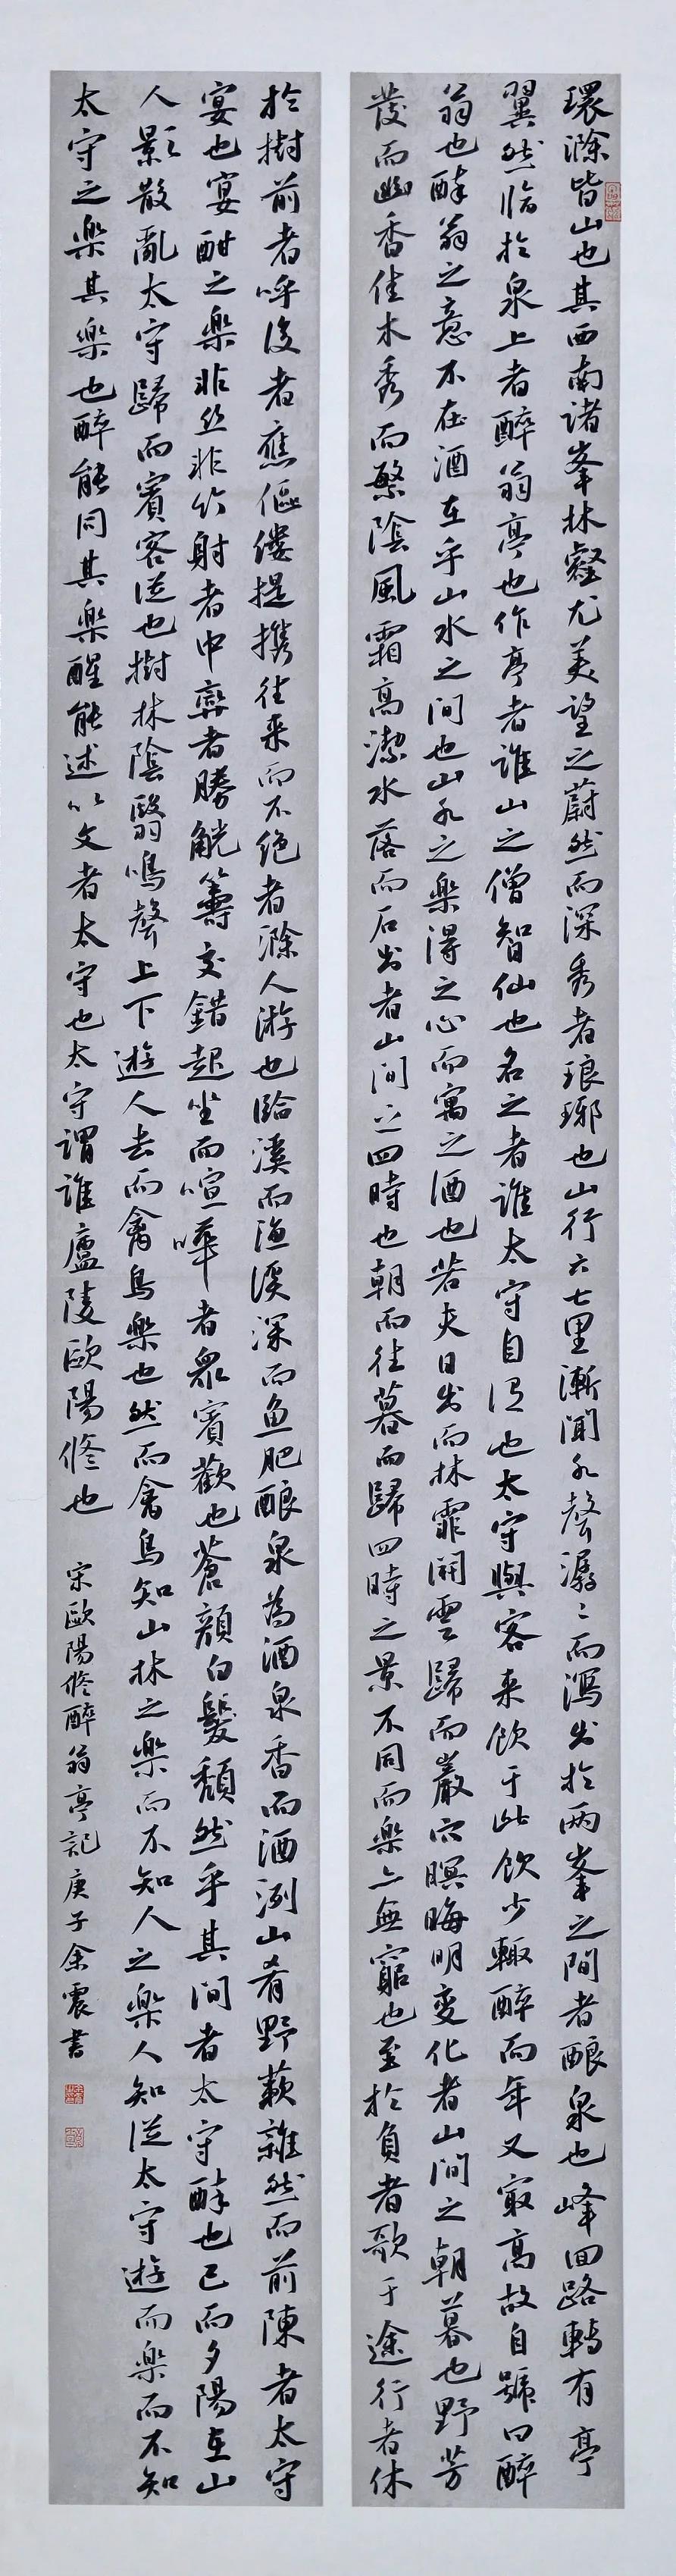 環滁皆山也其西南諸峯林壑尤美望之蔚然而深秀者琅琊也山行六七里漸聞水聲潺〻而瀉出於两峯之間者釀泉也峰回路轉有亭
翼然臨於泉上者醉翁亭也作亭者誰山之僧智仙也名之者誰太守自謂也太守與客来飲于此飲少輒醉而年又㝡高故自號曰醉
翁也酔翁之意不在酒在乎山水之間也山水之樂得之心而寓之酒也若夫日出而林霏開雲歸而巖穴暝晦明變化者山間之朝暮也野芳
發而幽香佳木秀而繁陰風霜高潔水落而石出者山間之四時也朝而往暮而歸四時之景不同而樂亦無窮也至於負者歌于途行者休
於樹前者呼後者應傴僂提携往来而不絶者滁人游也臨溪而漁溪深而魚肥釀泉為酒泉香而酒洌山肴野蔌雜然而前陳者太守
宴也宴酣之樂非絲非竹射者中弈者勝觥籌交錯起坐而喧嘩者眾賓歡也蒼顏白髮頹然乎其間者太守酔也已而夕陽在山
人影散亂太守歸而賓客從也樹林陰翳鳴聲上下遊人去而禽鳥樂也然而禽鳥知山林之樂而不知人之樂人知從太守遊而樂而不知
太守之樂其樂也醉能同其樂醒能述以文者太守也太守謂誰廬陵歐陽修也
宋歐陽修醉翁亭記庚子余震書